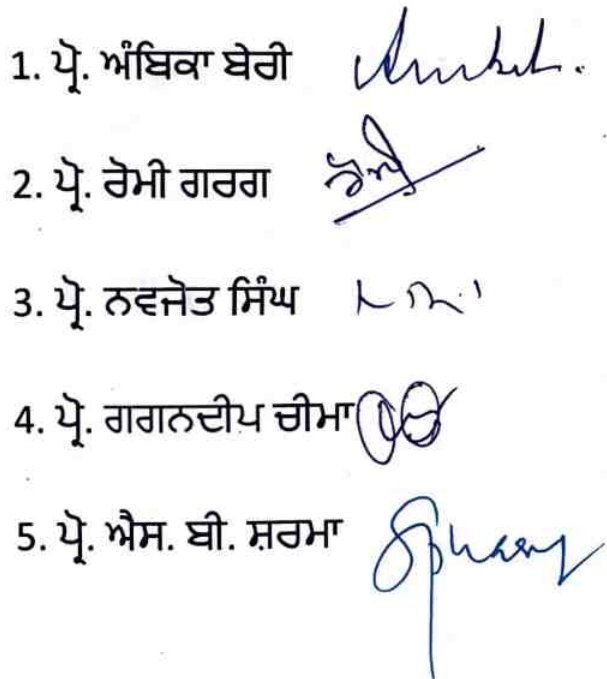 1. ਪ੍ਰੋ. ਅੰਬਿਕਾ ਬੇਰੀ
2. ਪ੍ਰੋ. ਰੋਮੀ ਗਰਗ
3. ਪ੍ਰੋ. ਨਵਜੋਤ ਸਿੰਘ
4. ਪ੍ਰੋ. ਗਗਨਦੀਪ ਚੀਮਾ
5. ਪ੍ਰੋ. ਐਸ. ਬੀ. ਸ਼ਰਮਾ